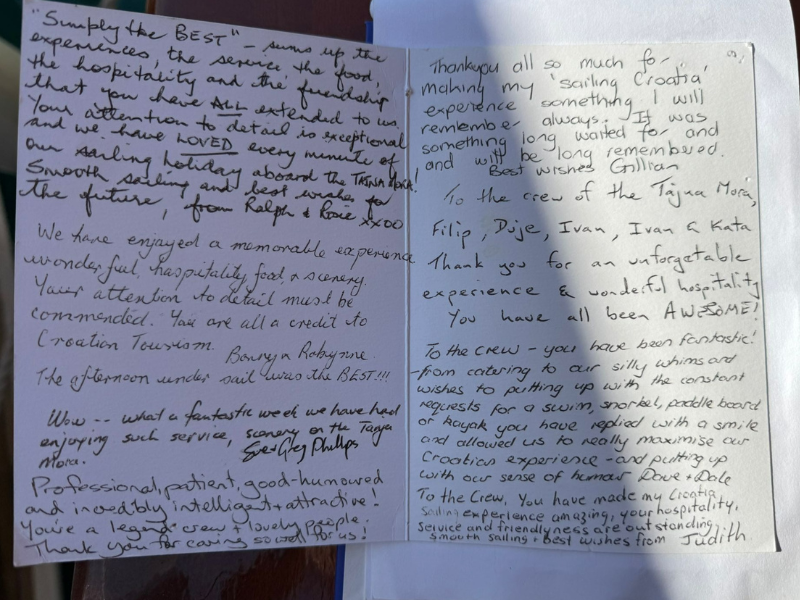 "Simply the BEST" - sums up the
experiences, the service the food,
the hospitality and the friendship
that you have ALL extended to us.
Your attention to detail is exceptional
and we have LOVED every minute of
our sailing holiday aboard the TAJNA MORA!
Smooth sailing and best wishes for
the future, from Ralph & Rosie xxoo
We have enjoyed a memorable experience
wonderful, hospitality, food, & scenery.
Your attention to detail must be
commended. You are all a credit to
Croatian Tourism. Barry n Robynne.
The afternoon under sail was the BEST!!!
Wow -- what a fantastic week we have had
enjoying such service, scenery on the Tajna
Mora. Sue & Greg Phillips
Professional, patient, good-humoured
and incredibly intelligent + attractive!
You're a legend crew + lovely people.
Thank you for caring so well for us!
Thankyou all so much for
making my 'sailing Croatia'
experience something I will
remember always. It was
something long waited for and
and will be long remembered.
Best wishes Gillian
To the crew of the Tajna Mora,
Filip, Duje, Ivan, Ivan & Kata
Thank you for an unforgetable
experience & wonderful hospitality
You have all been AWESOME!
To the crew - you have been fantastic!
-from catering to our silly whims and
wishes to putting up with the constant
requests for a swim, snorkel, paddle board
or kayak you have replied with a smile
and allowed us to really maximise our
Croatian experience - and putting up
with our sense of humour Dave + Dale
To the Crew, You have made my Croatia
Sailing experience amazing, your hospitality,
service and friendlyness are outstanding
Smooth sailing + Best wishes from Judith